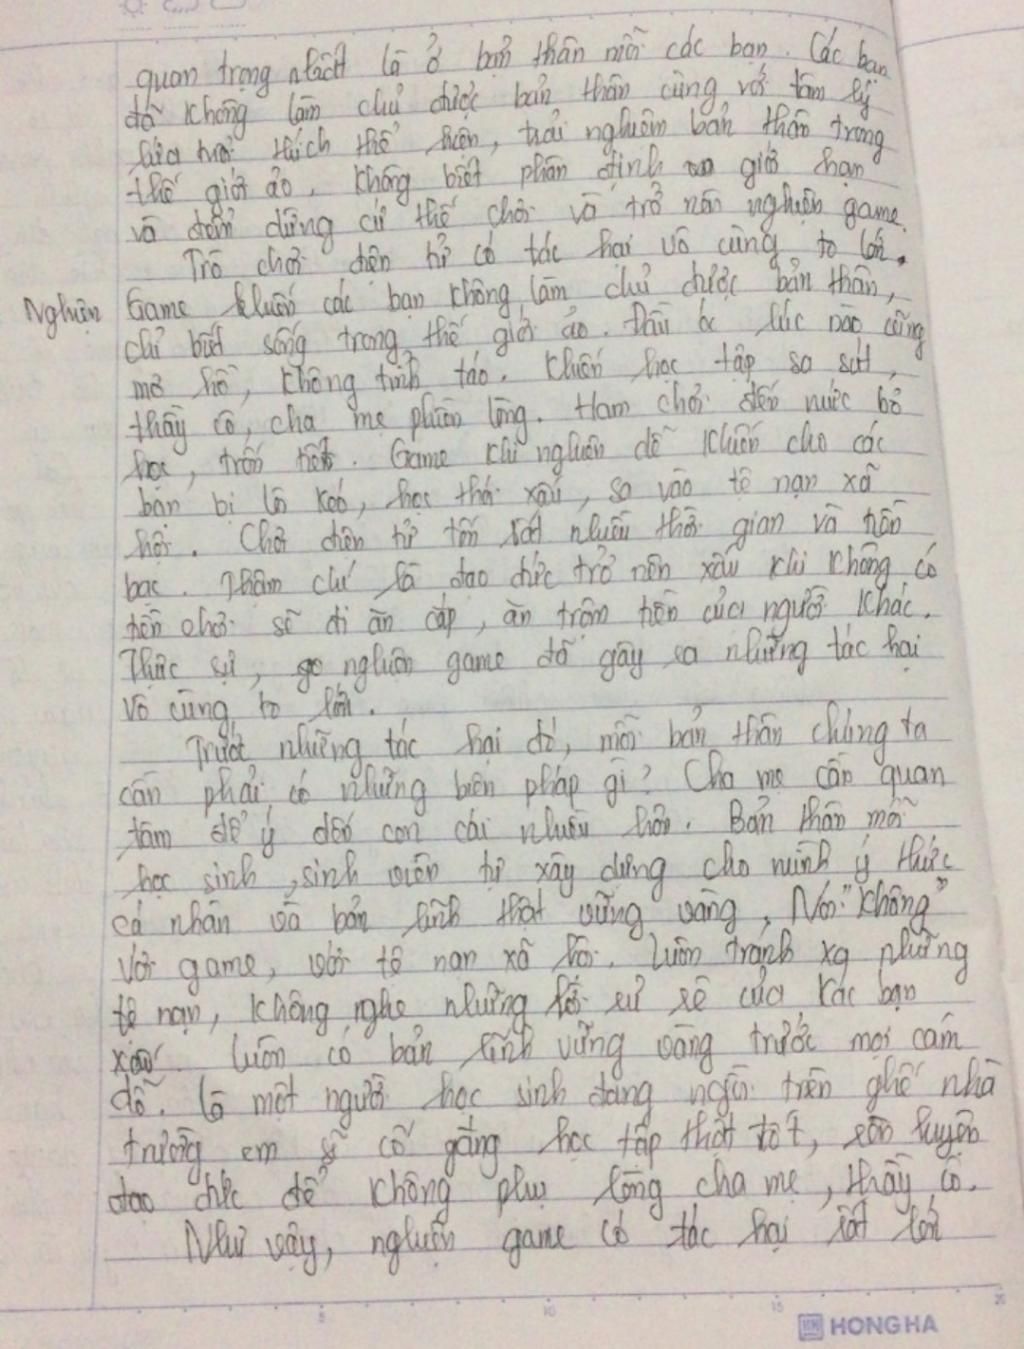 quan trọng nhất là ở bản thân mỗi các bạn. Các bạn
đã không làm chủ được bản thân cùng với tâm lý
lứa tuổi thích thể hiện, trải nghiệm bản thân trong
thế giới ảo. Không biết phân định giới hạn
và điểm dừng cứ thế chơi và trở nên nghiện game.
Trò chơi điện tử có tác hại vô cùng to lớn.
Nghiện Game khiến các bạn không làm chủ được bản thân,
chỉ biết sống trong thế giới ảo. Đầu óc lúc nào cũng
mơ hồ, không tỉnh táo. Khiến học tập sa sút,
thầy cô, cha mẹ phiền lòng. Ham chơi đến mức bỏ
học, trốn tiết. Game khi nghiện dễ khiến cho các
bạn bị lôi kéo, học thói xấu, sa vào tệ nạn xã
hội. Chơi điện tử tốn rất nhiều thời gian và tiền
bạc. Thậm chí là đạo đức trở nên xấu khi không có
tiền chơi sẽ đi ăn cắp, ăn trộm tiền của người khác.
Thực sự, nghiện game đã gây ra những tác hại
vô cùng to lớn.
Trước những tác hại đó, mỗi bản thân chúng ta
cần phải có những biện pháp gì? Cha mẹ cần quan
tâm để ý đến con cái nhiều hơn. Bản thân mỗi
học sinh, sinh viên tự xây dựng cho mình ý thức
cá nhân và bản lĩnh thật vững vàng, Nói "Không"
với game, với tệ nạn xã hội. Luôn tránh xa những
tệ nạn, không nghe những lời rủ rê của các bạn
xấu. Luôn có bản lĩnh vững vàng trước mọi cám
dỗ. Là một người học sinh đang ngồi trên ghế nhà
trường em sẽ cố gắng học tập thật tốt, rèn luyện
đạo đức để không phụ lòng cha mẹ, thầy cô.
Như vậy, nghiện game có tác hại rất lớn
5 10 15 20
HONG HA